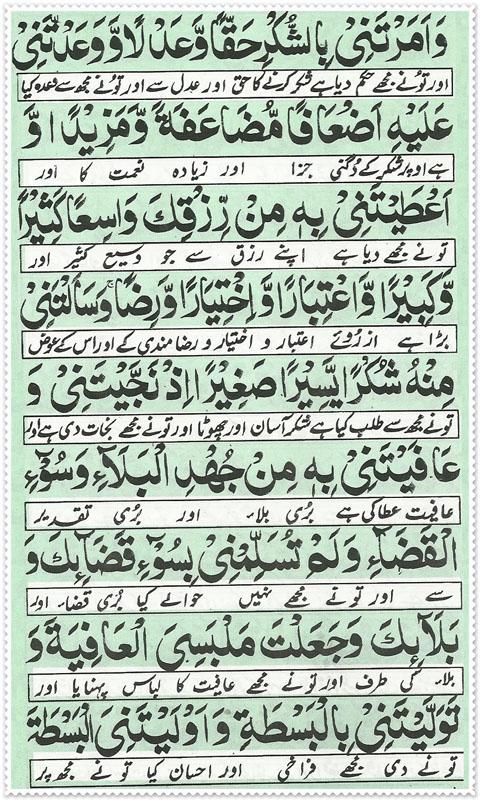 وَاَمَرْتَنِیْ بِالشُّكْرِ حَقًّا وَّعَدْلًا وَّوَعَدْتَّنِیْ
اور تونے مجھے حکم دیا ہے شکر کرنے کا حق اور عدل سے اور تونے مجھ سے وعدہ کیا
عَلَيْهِ اَضْعَافًا مُّضَاعَفَةً وَّمَزِيْدًا وَّ
ہے اوپر شکر کے دُگنی جزا اور زیادہ نعمت کا اور
اَعْطَيْتَنِیْ بِهٖ مِنْ رِّزْقِكَ وَاسِعًا كَثِيْرًا
تونے مجھے دیا ہے اپنے رزق سے جو وسیع کثیر اور
وَّكَبِيْرًا وَّاعْتِبَارًا وَّاِخْتِيَارًا وَّرِضًا وَسَاَلْتَنِیْ
بڑا ہے ازروئے اعتبار و اختیار و رضامندی کے اور اس کے عوض
مِنْهُ شُكْرًا يَّسِيْرًا صَغِيْرًا اِذْ نَجَّيْتَنِیْ وَ
تونے مجھ سے طلب کیا ہے شکر آسان اور چھوٹا اور تونے مجھے نجات دی ہے اور
عَافَيْتَنِیْ بِهٖ مِنْ جُهْدِ الْبَلَآءِ وَسُوْٓءِ
عافیت عطا کی ہے بُری بلاء اور بُری تقدیر
الْقَضَآءِ وَلَمْ تُسَلِّمْنِیْ بِسُوْٓءِ قَضَآئِكَ وَ
سے اور تونے مجھے نہیں حوالے کیا بُری قضاء اور
بَلَآئِكَ وَجَعَلْتَ مَلْبَسِیَ الْعَافِيَةَ وَ
بلاء کی طرف اور تونے مجھے عافیت کا لباس پہنایا اور
تَوَلَّيْتَنِیْ بِالْبَسْطَةِ وَاَوْلَيْتَنِیَ الْبَسْطَةَ
تونے دی مجھے فراخی اور احسان کیا تونے مجھ پر